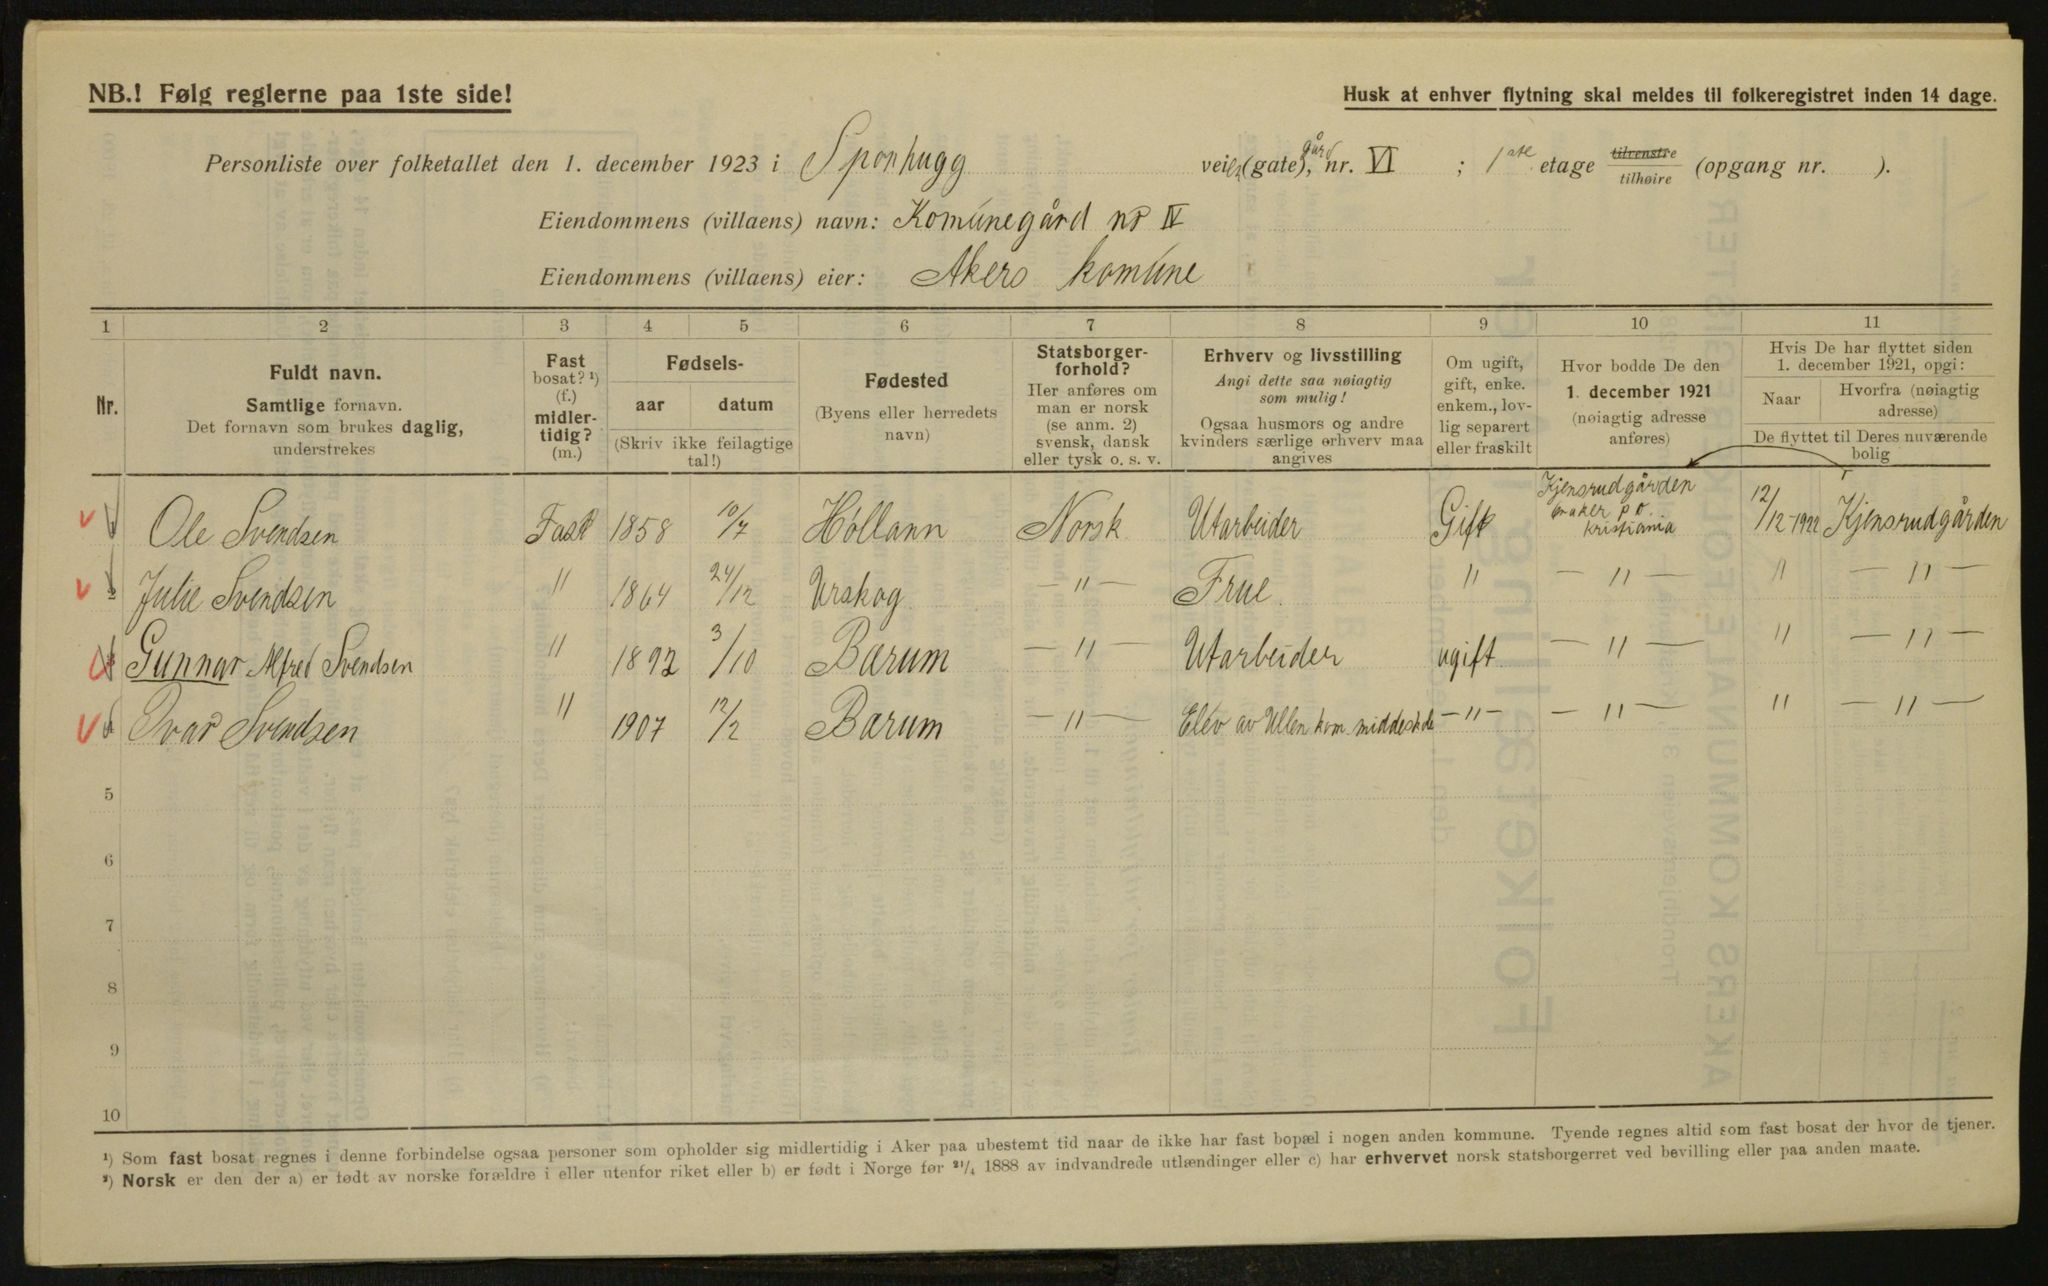 NB.! Følg reglerne paa 1ste side!
Husk at enhver flytning skal meldes til folkeregistret inden 14 dage.
Personliste over folketallet den 1. december 1923 i Sponhugg veien (gate), gård nr. VI ; 1ste etage tilvenstre tilhøire (opgang nr. ).
Eiendommens (villaens) navn: Komunegård nr IV
Eiendommens (villaens) eier: Akers komune
1 2 3 4 5 6 7 8 9 10 11
Nr.
Fuldt navn.
Samtlige fornavn.
Det fornavn som brukes daglig,
understrekes
Fast
bosat? ¹)
(f.)
midler-
tidig?
(m.)
Fødsels-
aar datum
(Skriv ikke feilagtige
tal!)
Fødested
(Byens eller herredets
navn)
Statsborger-
forhold?
Her anføres om
man er norsk
(se anm. 2)
svensk, dansk
eller tysk o. s. v.
Erhverv og livsstilling
Angi dette saa nøiagtig
som mulig!
Ogsaa husmors og andre
kvinders særlige erhverv maa
angives
Om ugift,
gift, enke.
enkem., lov-
lig separert
eller fraskilt
Hvor bodde De den
1. december 1921
(nøiagtig adresse
anføres)
Hvis De har flyttet siden
1. december 1921, opgi:
Naar Hvorfra (nøiagtig
adresse)
De flyttet til Deres nuværende
bolig
Ole Svendsen Fast 1858 10/7 Høllann Norsk Utarbeider Gift Kjensrudgården
Kristiania 12/12-1922 Kjensrudgården
Julie Svendsen " 1864 24/12 Urskog — " — Frue " — " — " — " —
Gunnar Alfred Svendsen " 1892 3/10 Bærum — " — Utarbeider ugift — " — " — " —
Ivar Svendsen " 1907 12/2 Bærum — " — Elev av Ullen kom. middeskole — " — — " — " — " —
5
6
7
8
9
10
¹) Som fast bosat regnes i denne forbindelse ogsaa personer som opholder sig midlertidig i Aker paa ubestemt tid naar de ikke har fast bopæl i nogen anden kommune. Tyende regnes altid som fast bosat der hvor de tjener.
²) Norsk er den der a) er født av norske forældre i eller utenfor riket eller b) er født i Norge før ²¹/₄ 1888 av indvandrede utlændinger eller c) har erhvervet norsk statsborgerret ved bevilling eller paa anden maate.